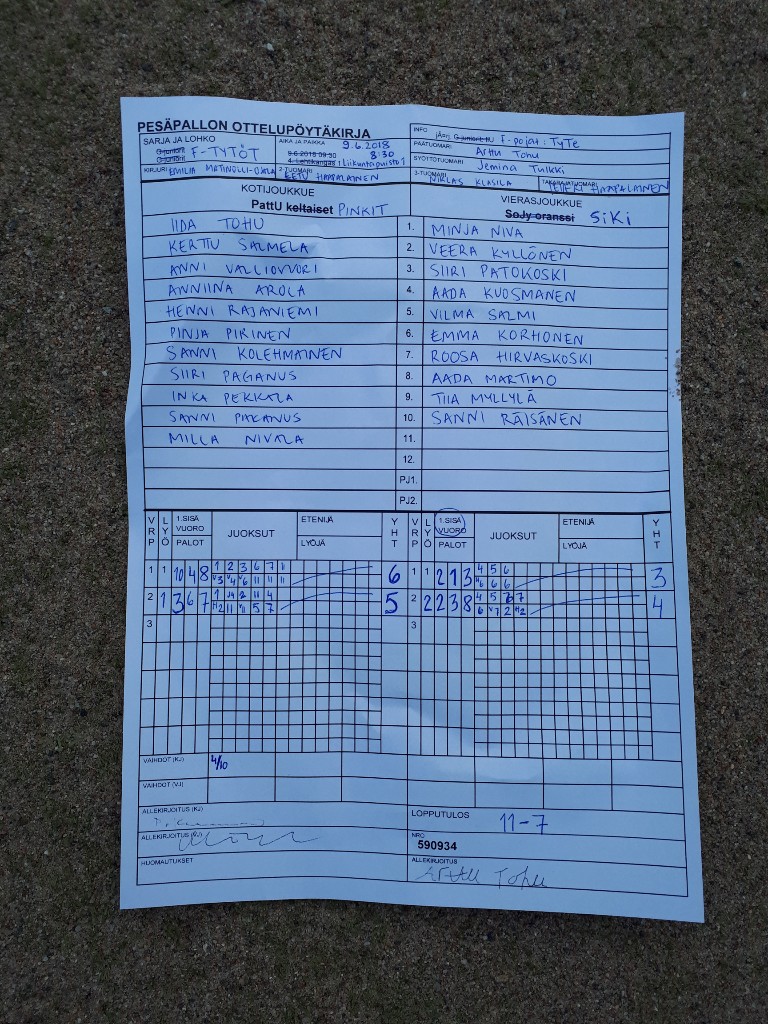 PESÄPALLON OTTELUPÖYTÄKIRJA
SARJA JA LOHKO
F-TYTÖT
AIKA JA PAIKKA 9.6.2018
9.6.2018 09:30 8:30
4. Lehtikangas 1 Liikuntapuisto 1
INFO
järj. G-juniorit: F-pojat: TyTe
PÄÄTUOMARI Arttu Tohu
SYÖTTÖTUOMARI Jemina Tulkki
KIRJURI EMILIA
2-TUOMARI EETU HAAPALAINEN
3-TUOMARI NIKLAS KLASILA
TAKARAJATUOMARI HAAPALAINEN
KOTIJOUKKUE
PattU keltaiset PINKIT
VIERASJOUKKUE
SoJy oranssi SiKi
IIDA TOHU 1. MINJA NIVA
KERTTU SALMELA 2. VEERA KYLLÖNEN
ANNI VALLIOVUORI 3. SIIRI PATOKOSKI
ANNIINA AROLA 4. AADA KUOSMANEN
HENNI RAJANIEMI 5. VILMA SALMI
PINJA PIRINEN 6. EMMA KORHONEN
SANNI KOLEHMAINEN 7. ROOSA HIRVASKOSKI
SIIRI PAGANUS 8. AADA MARTIMO
INKA PEKKALA 9. TIIA MYLLYLÄ
SANNI PAKANUS 10. SANNI RÄISÄNEN
MILLA NIVALA 11.
12.
PJ1.
PJ2.
VRP LYÖ 1.SISÄ VUORO PALOT JUOKSUT ETENIJÄ LYÖJÄ YHT VRP LYÖ 1.SISÄ VUORO PALOT JUOKSUT ETENIJÄ LYÖJÄ YHT
1 1 10 4 8 1 2 3 6 7 11 6 1 1 2 1 3 4 5 6 3
V3 V4 V6 11 11 11 6 6
2 1 3 6 7 5 2 2 2 3 8 4
3 3
VAIHDOT (KJ) 4/10
VAIHDOT (VJ)
ALLEKIRJOITUS (KJ)
ALLEKIRJOITUS (VJ)
HUOMAUTUKSET
LOPPUTULOS 11-7
NRO
590934
ALLEKIRJOITUS
Arttu Tohu